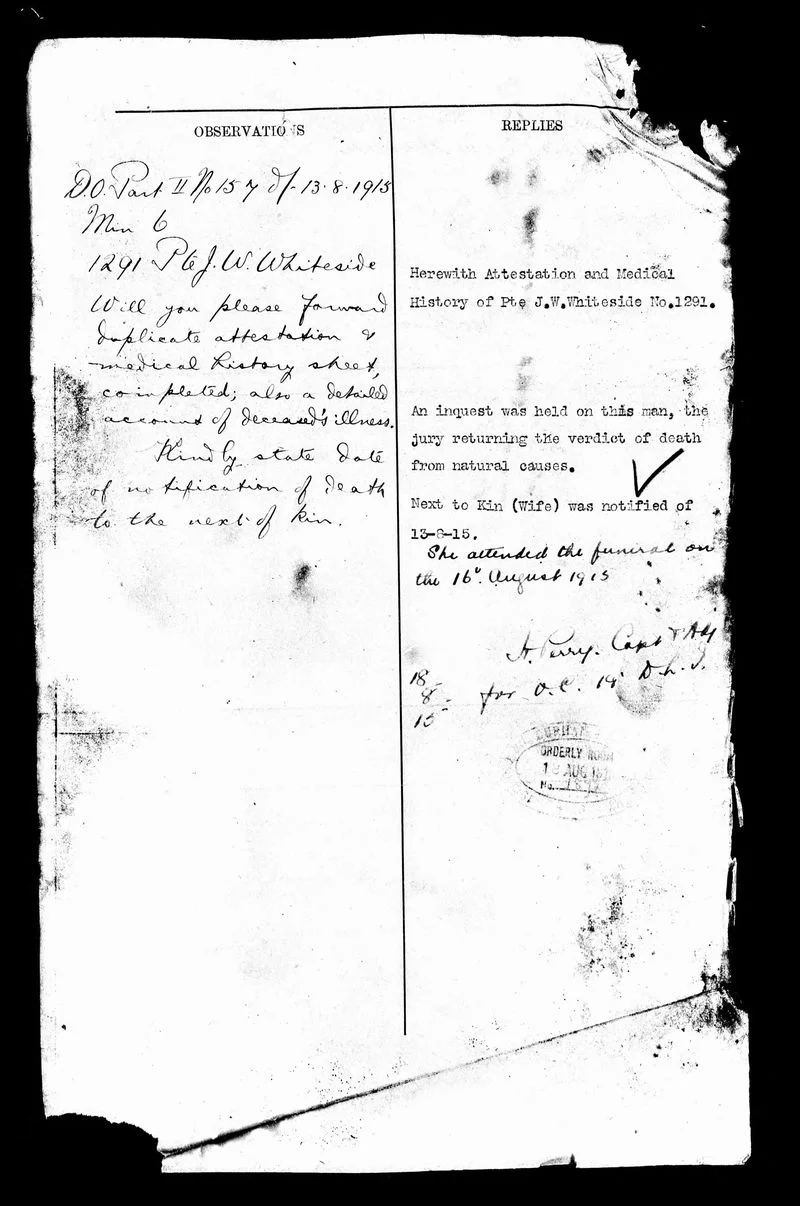 OBSERVATIONS
D.O. Part II No 157 d/- 13.8.1915
Min 6
1291 Pte J. W. Whiteside
Will you please forward
duplicate attestation &
medical history sheet,
completed; also a detailed
account of deceased's illness.
Kindly state date
of notification of death
to the next of kin.
REPLIES
Herewith Attestation and Medical
History of Pte J.W.Whiteside No.1291.
An inquest was held on this man, the
jury returning the verdict of death
from natural causes.
Next to Kin (Wife) was notified of
13-8-15.
She attended the funeral on
the 16th August 1915
H. Perry. Capt & Adj
for O.C. D.L.I.
18
8
15
ORDERLY ROOM
AUG
No.